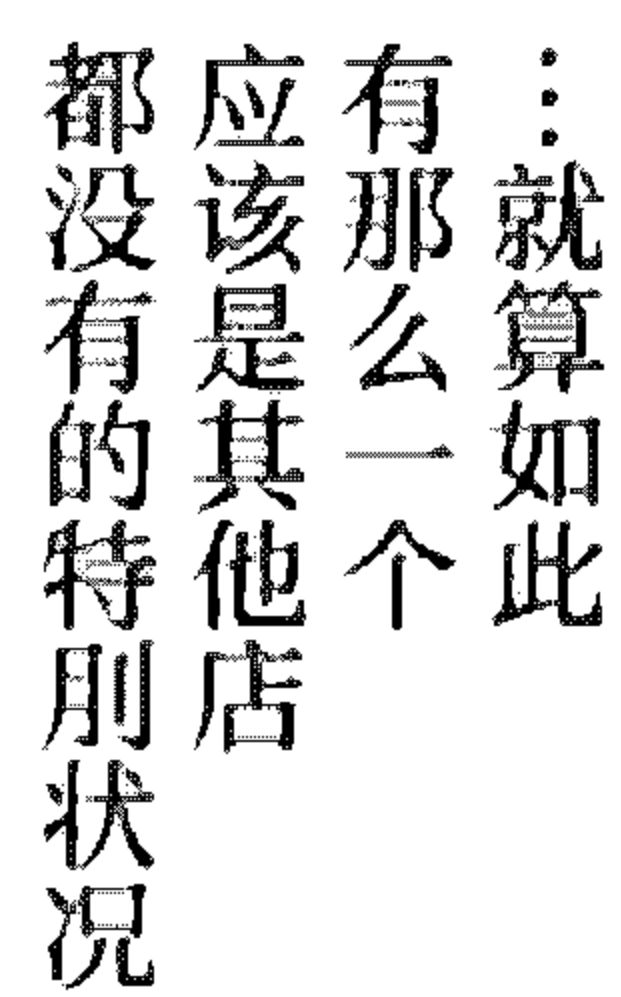 …就算如此
有那么一个
应该是其他店
都没有的特刖状况